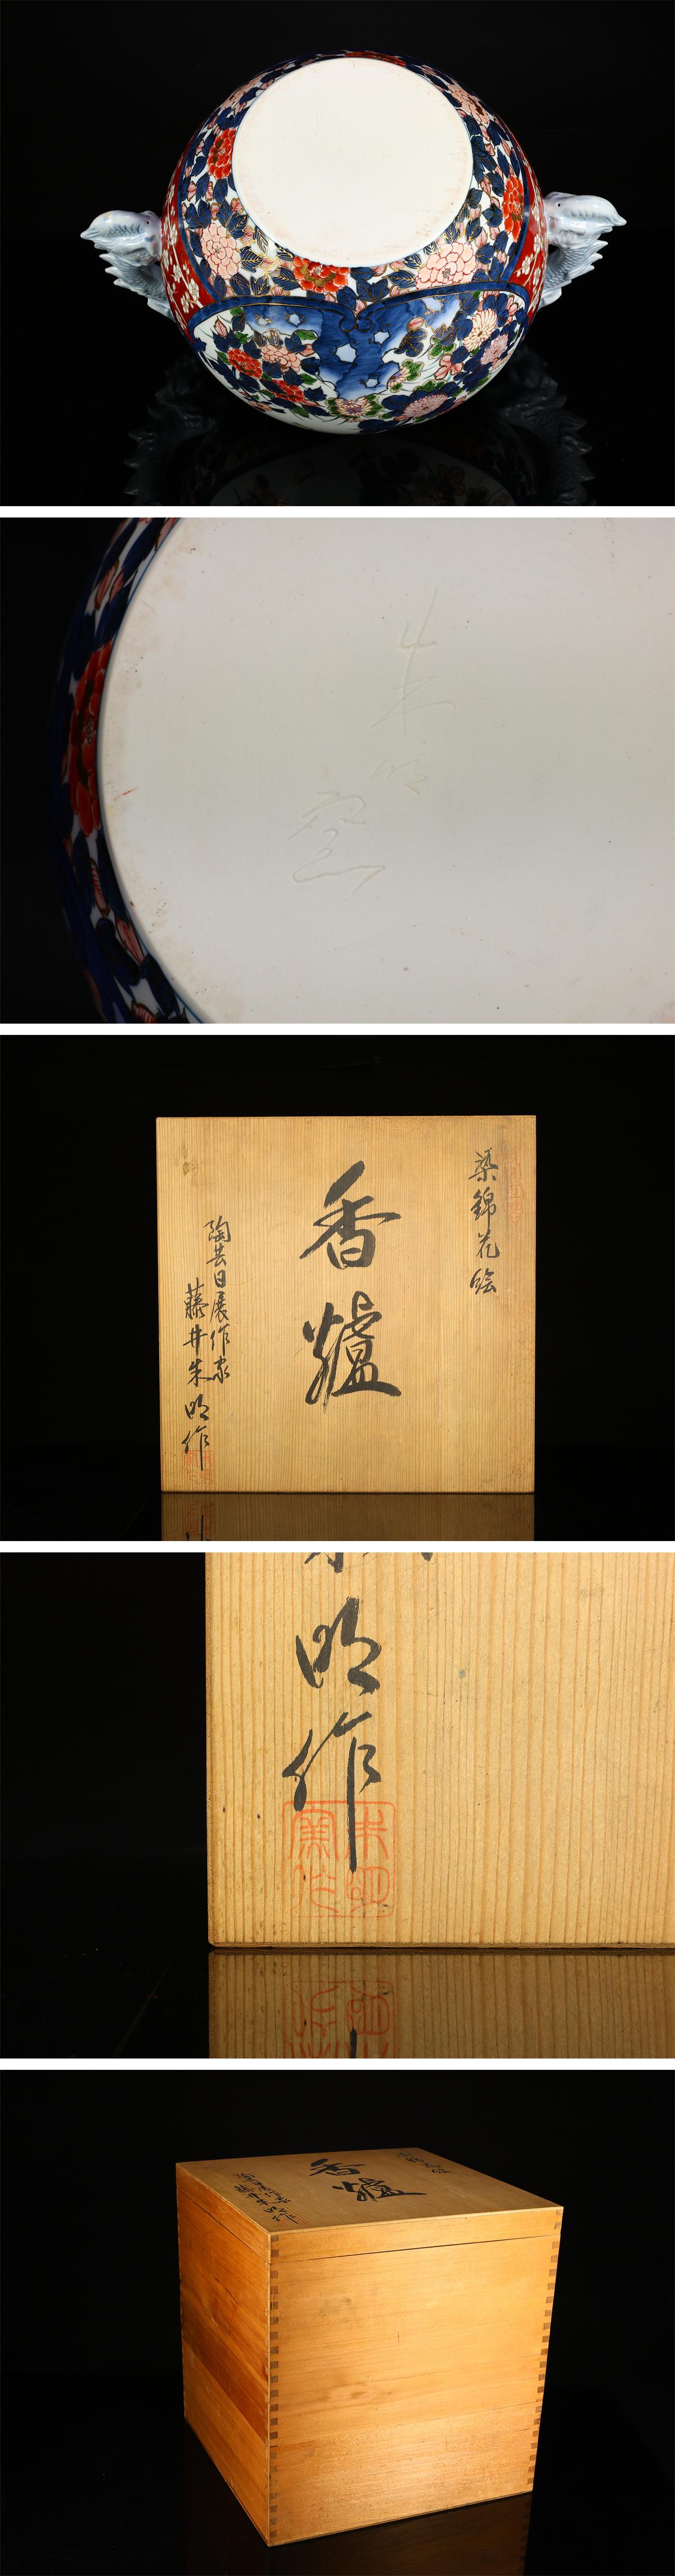 朱明
窯
染錦花絵
香爐
陶芸日展作家
藤井朱明作
明作
朱明
窯作
香爐